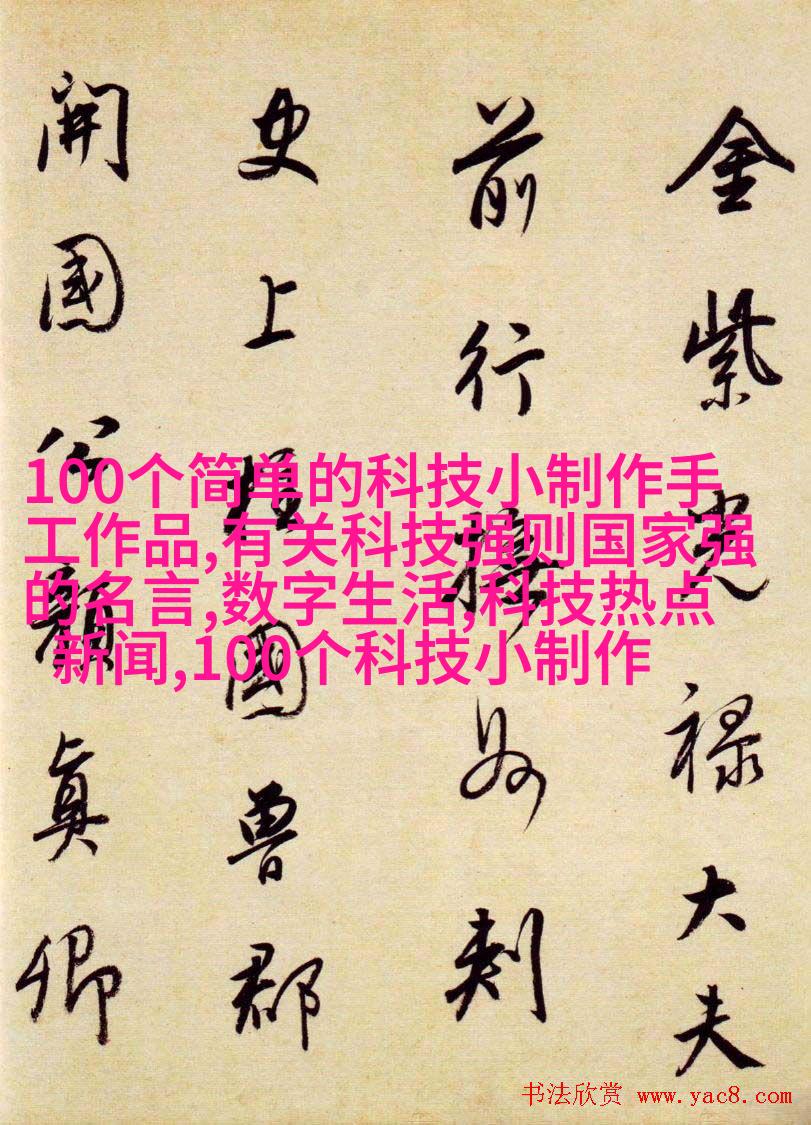 金紫光禄大夫
前行撫州刺
史上柱國魯郡
開國公顏眞卿
100个简单的科技小制作手
工作品,有关科技强则国家强
的名言,数字生活,科技热点
新闻,100个科技小制作
书法欣赏 www.yac8.com